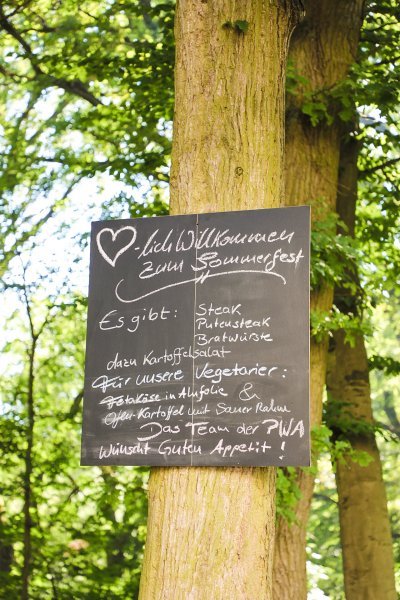 ♡-lich Willkommen
zum Sommerfest
Es gibt: Steak
Putensteak
Bratwürste
dazu Kartoffelsalat
Für unsere Vegetarier:
Fetakäse in Alufolie &
Ofen-Kartoffel mit Sauer Rahm
Das Team der PWA
wünscht Guten Appetit!